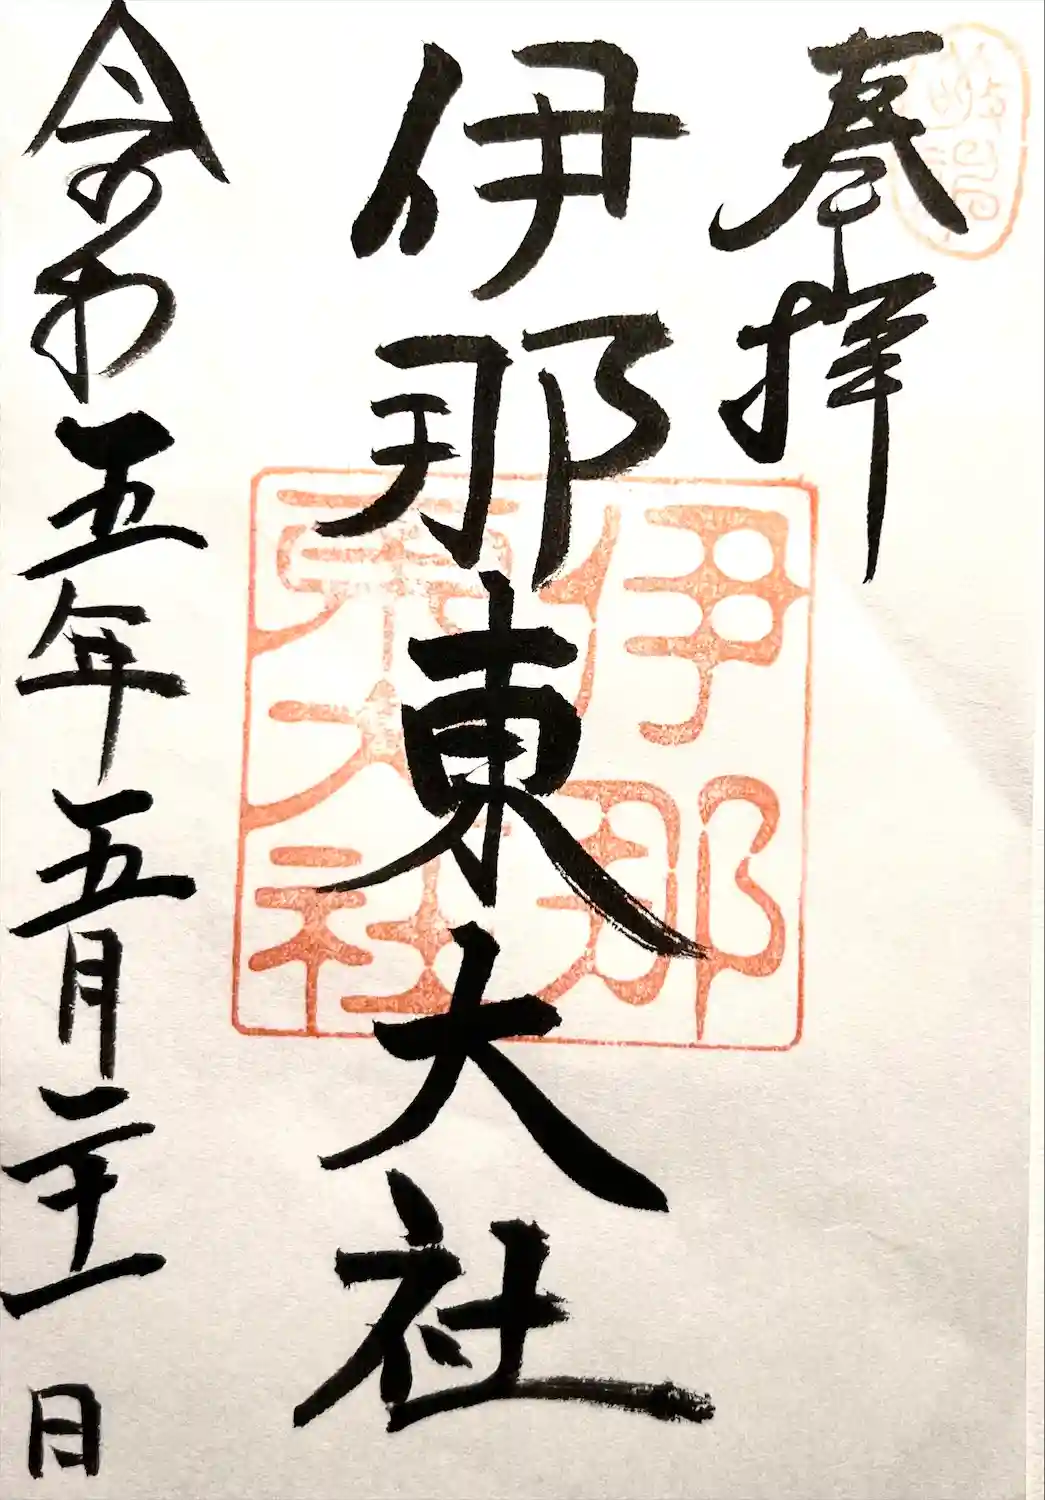 奉拝
伊那東大社
伊那
東大社
令和五年五月二十一日